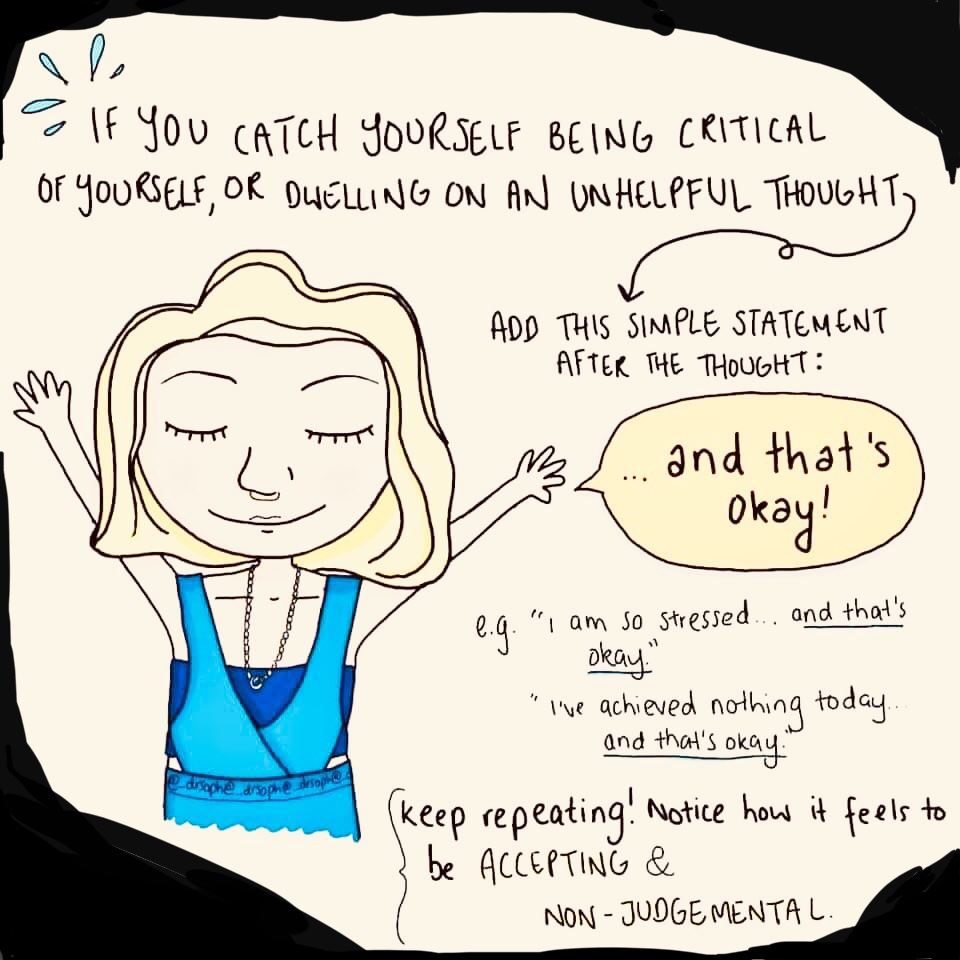 IF YOU CATCH YOURSELF BEING CRITICAL
OF YOURSELF, OR DWELLING ON AN UNHELPFUL THOUGHT
ADD THIS SIMPLE STATEMENT
AFTER THE THOUGHT:
... and that's
okay!
e.g. "I am so stressed... and that's
okay."
"I've achieved nothing today...
and that's okay."
@_drsoph@_drsoph@_drsoph@
keep repeating! Notice how it feels to
be ACCEPTING &
NON-JUDGEMENTAL.